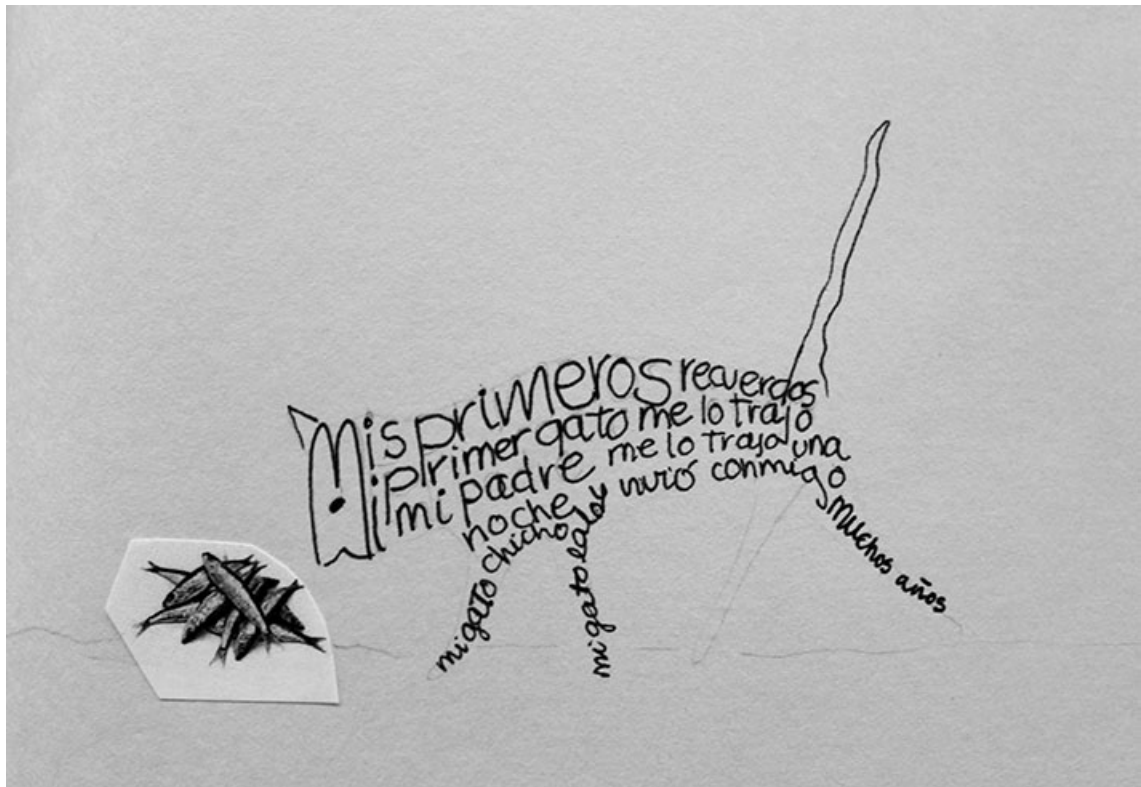 Mis primeros recuerdos
Mi primer gato me lo trajo
mi padre me lo trajo una
noche vivió conmigo
muchos años
mi gato chicho
mi gato